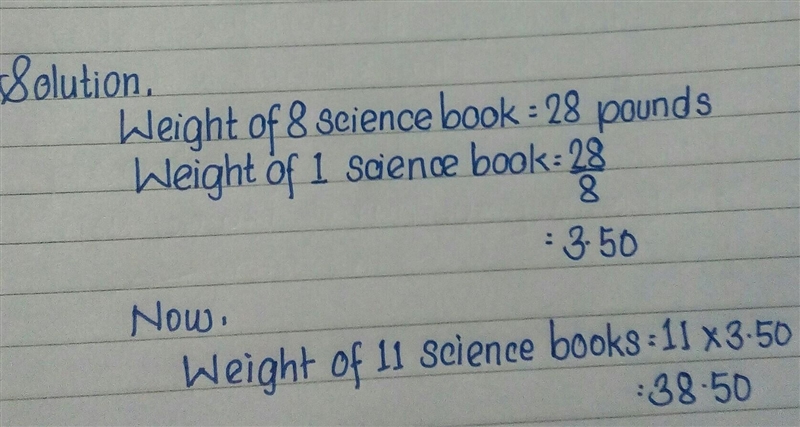 Solution.
Weight of 8 science book = 28 pounds
Weight of 1 science book = 28/8
= 3.50
Now.
Weight of 11 science books = 11 x 3.50
= 38.50